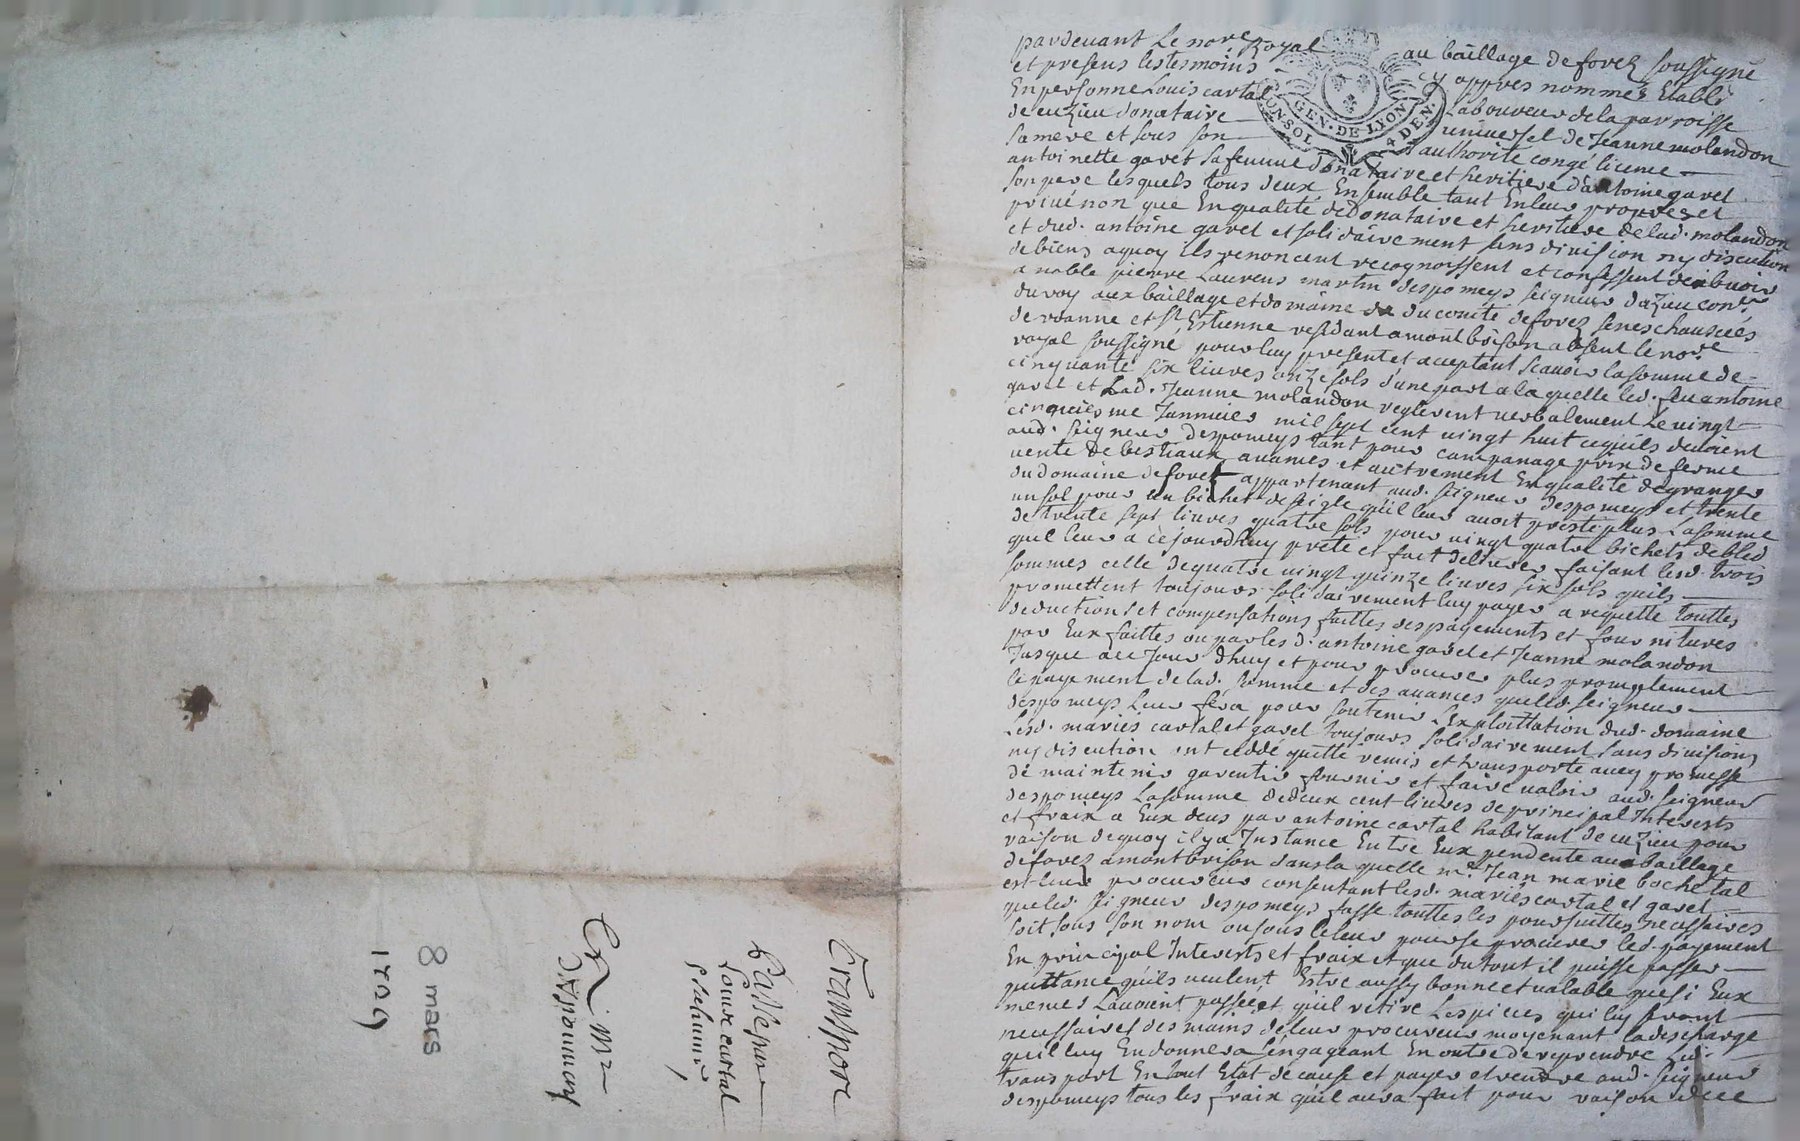 pardevant Le nore Royal au bâillage deforez soussigné
et presens les tesmoins cy appres nommés Etabli
En personne Louis cartal Laboureur de la parroisse
de cuzieu donataire universel de Jeanne molandon
sa mere et sous son authorité congé licence
antoinette gavet sa femme donataire et heritiere d'antoine gavet
son pere lesquels tous deux Ensemble tant En leur propre et
privé non que En qualité de donataire et heritiere de lad. molandon
et dud. antoine gavet et solidairement sans division ny discution
de biens aquoy ils renoncent recognoissent et confessent debvoir
a noble pierre Laurens martin despomeys seigneur dazieu coner
du roy aux bâillage et domaine du comté deforez seneschaussées
de roanne et st Estienne residant a montbrison absent le nore
royal soussigné pour luy present et acceptant scavoir la somme de
cinquante six livres onze sols d'une part a la quelle led. feu antoine
gavet et Lad. Jeanne molandon reglerent verbalement Le vingt
cinquiesme Janvier mil sept cent vingt huit ce quils devoient
aud. seigneur despomeys tant pour campanage prix de ferme
vente de bestiaux avances et autrement En qualité de granger
du domaine deforez appartenant aud. seigneur despomeys et trente
un sol pour un bichet de seigle quil leur avoit presté plus La somme
de trente sept livres quatre sols pour vingt quatre bichets de bled
quil leur a ce jourdhuy prété et fait delivrer faisant lesd. trois
sommes celle de quatre vingt quinze livres six sols quils
promettent toujours solidairement luy payer a requette touttes
deductions et compensations faittes des payements et fournitures
par Eux faittes ou par lesd. antoine gavet et Jeanne molandon
Jusque a ce Jour dhuy et pour procurer plus promptement
le payement de lad. somme et des avances que led. seigneur
despomeys Leur fera pour soutenir L'exploittation dud. domaine
Lesd. mariés cartal et gavet toujours solidairement sans division
ny discution ont ceddé quitté remis et transporté avec promesse
de maintenir garentir fournir et faire valoir aud. seigneur
despomeys La somme de deux cent livres de principal Interests
et fraix a Eux deus par antoine cartal habitant de cuzieu pour
raison de quoy il y a Instance Entre Eux pendente au baillage
deforez a montbrison dans la quelle me Jean marie bochetal
est leur procureur consentant lesd. mariés cartal et gavet
que led. seigneur despomeys fasse touttes les poursuittes necessaires
soit sous son nom ou sous le leur pour se procurer led. payement
En principal Interests et fraix et que du tout il puisse passer
quittance quils veulent Estre aussy bonne et valable que si Eux
memes L'avoient passée et quil retire Les pieces qui luy seront
necessaires des mains de leur procureur moyenant la descharge
quil luy En donnera s'engageant En outre de reprendre Led.
transport En tout Etat de cause et payer et rendre aud. seigneur
despomeys tous les fraix quil aura fait pour raison dice
GEN · DE · LYON
Transport
Passé par
Louis cartal
Ex. mr
8 mars
1729